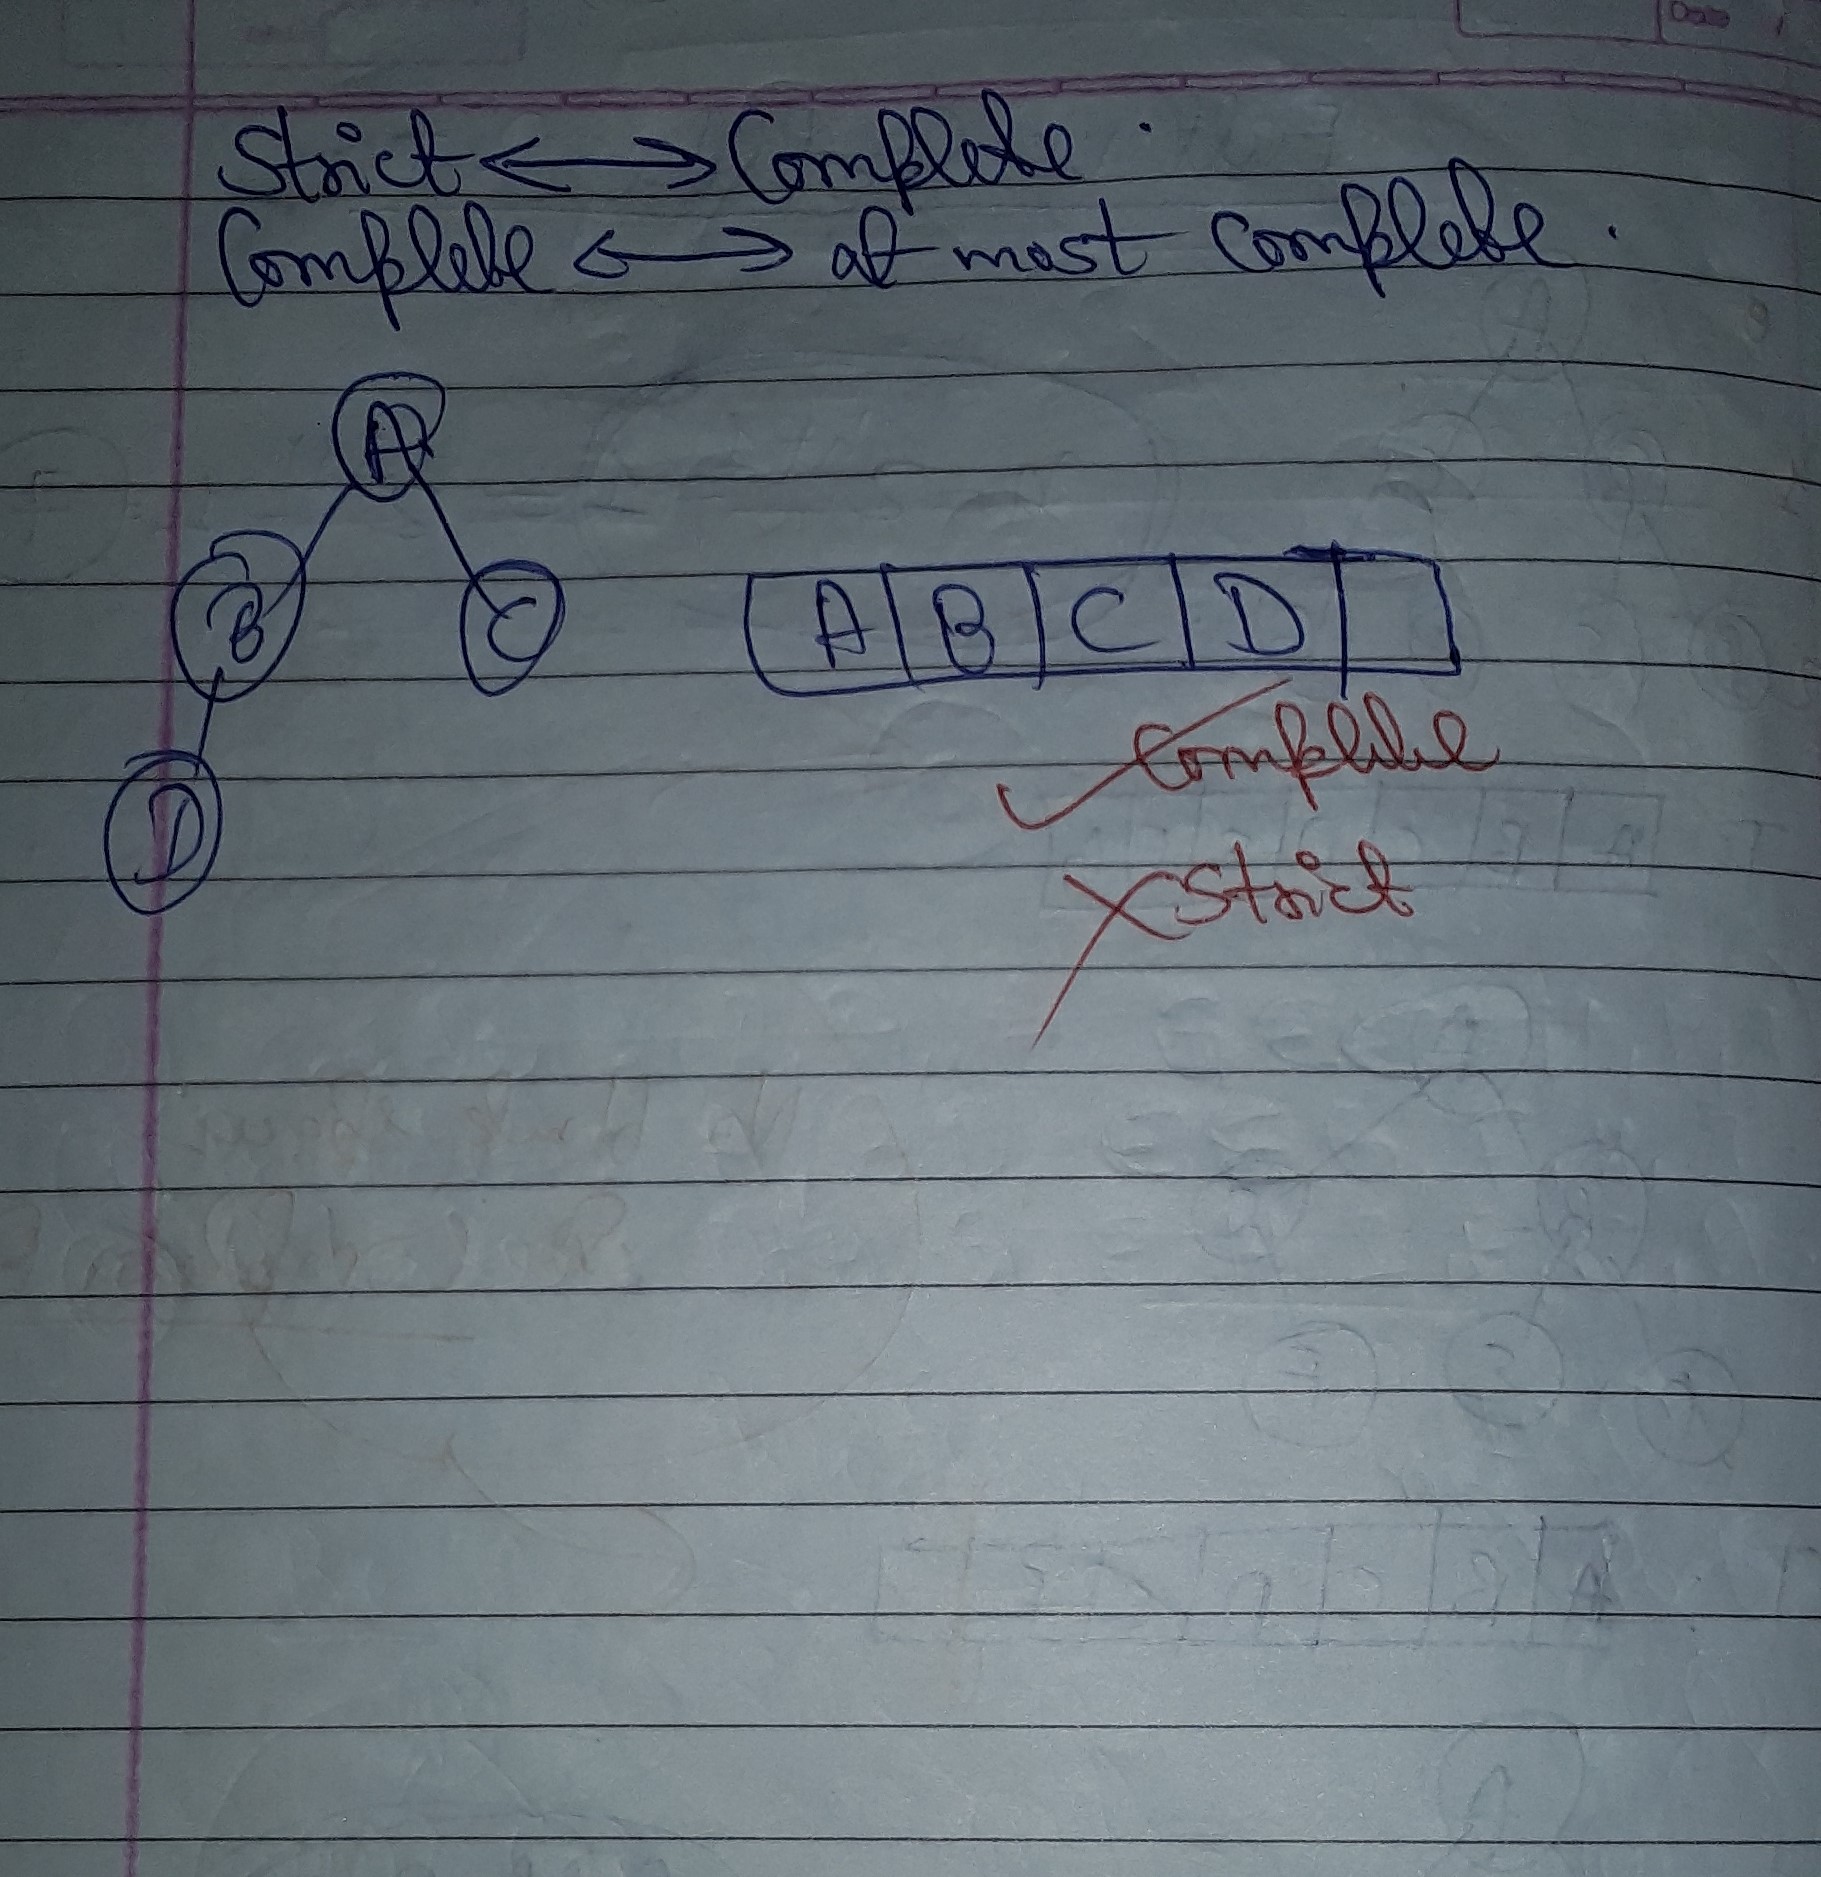 Date
Strict ⟷ Complete.
Complete ⟷ at most complete.
A
B C
D
A B C D
✓ Complete
X Strict